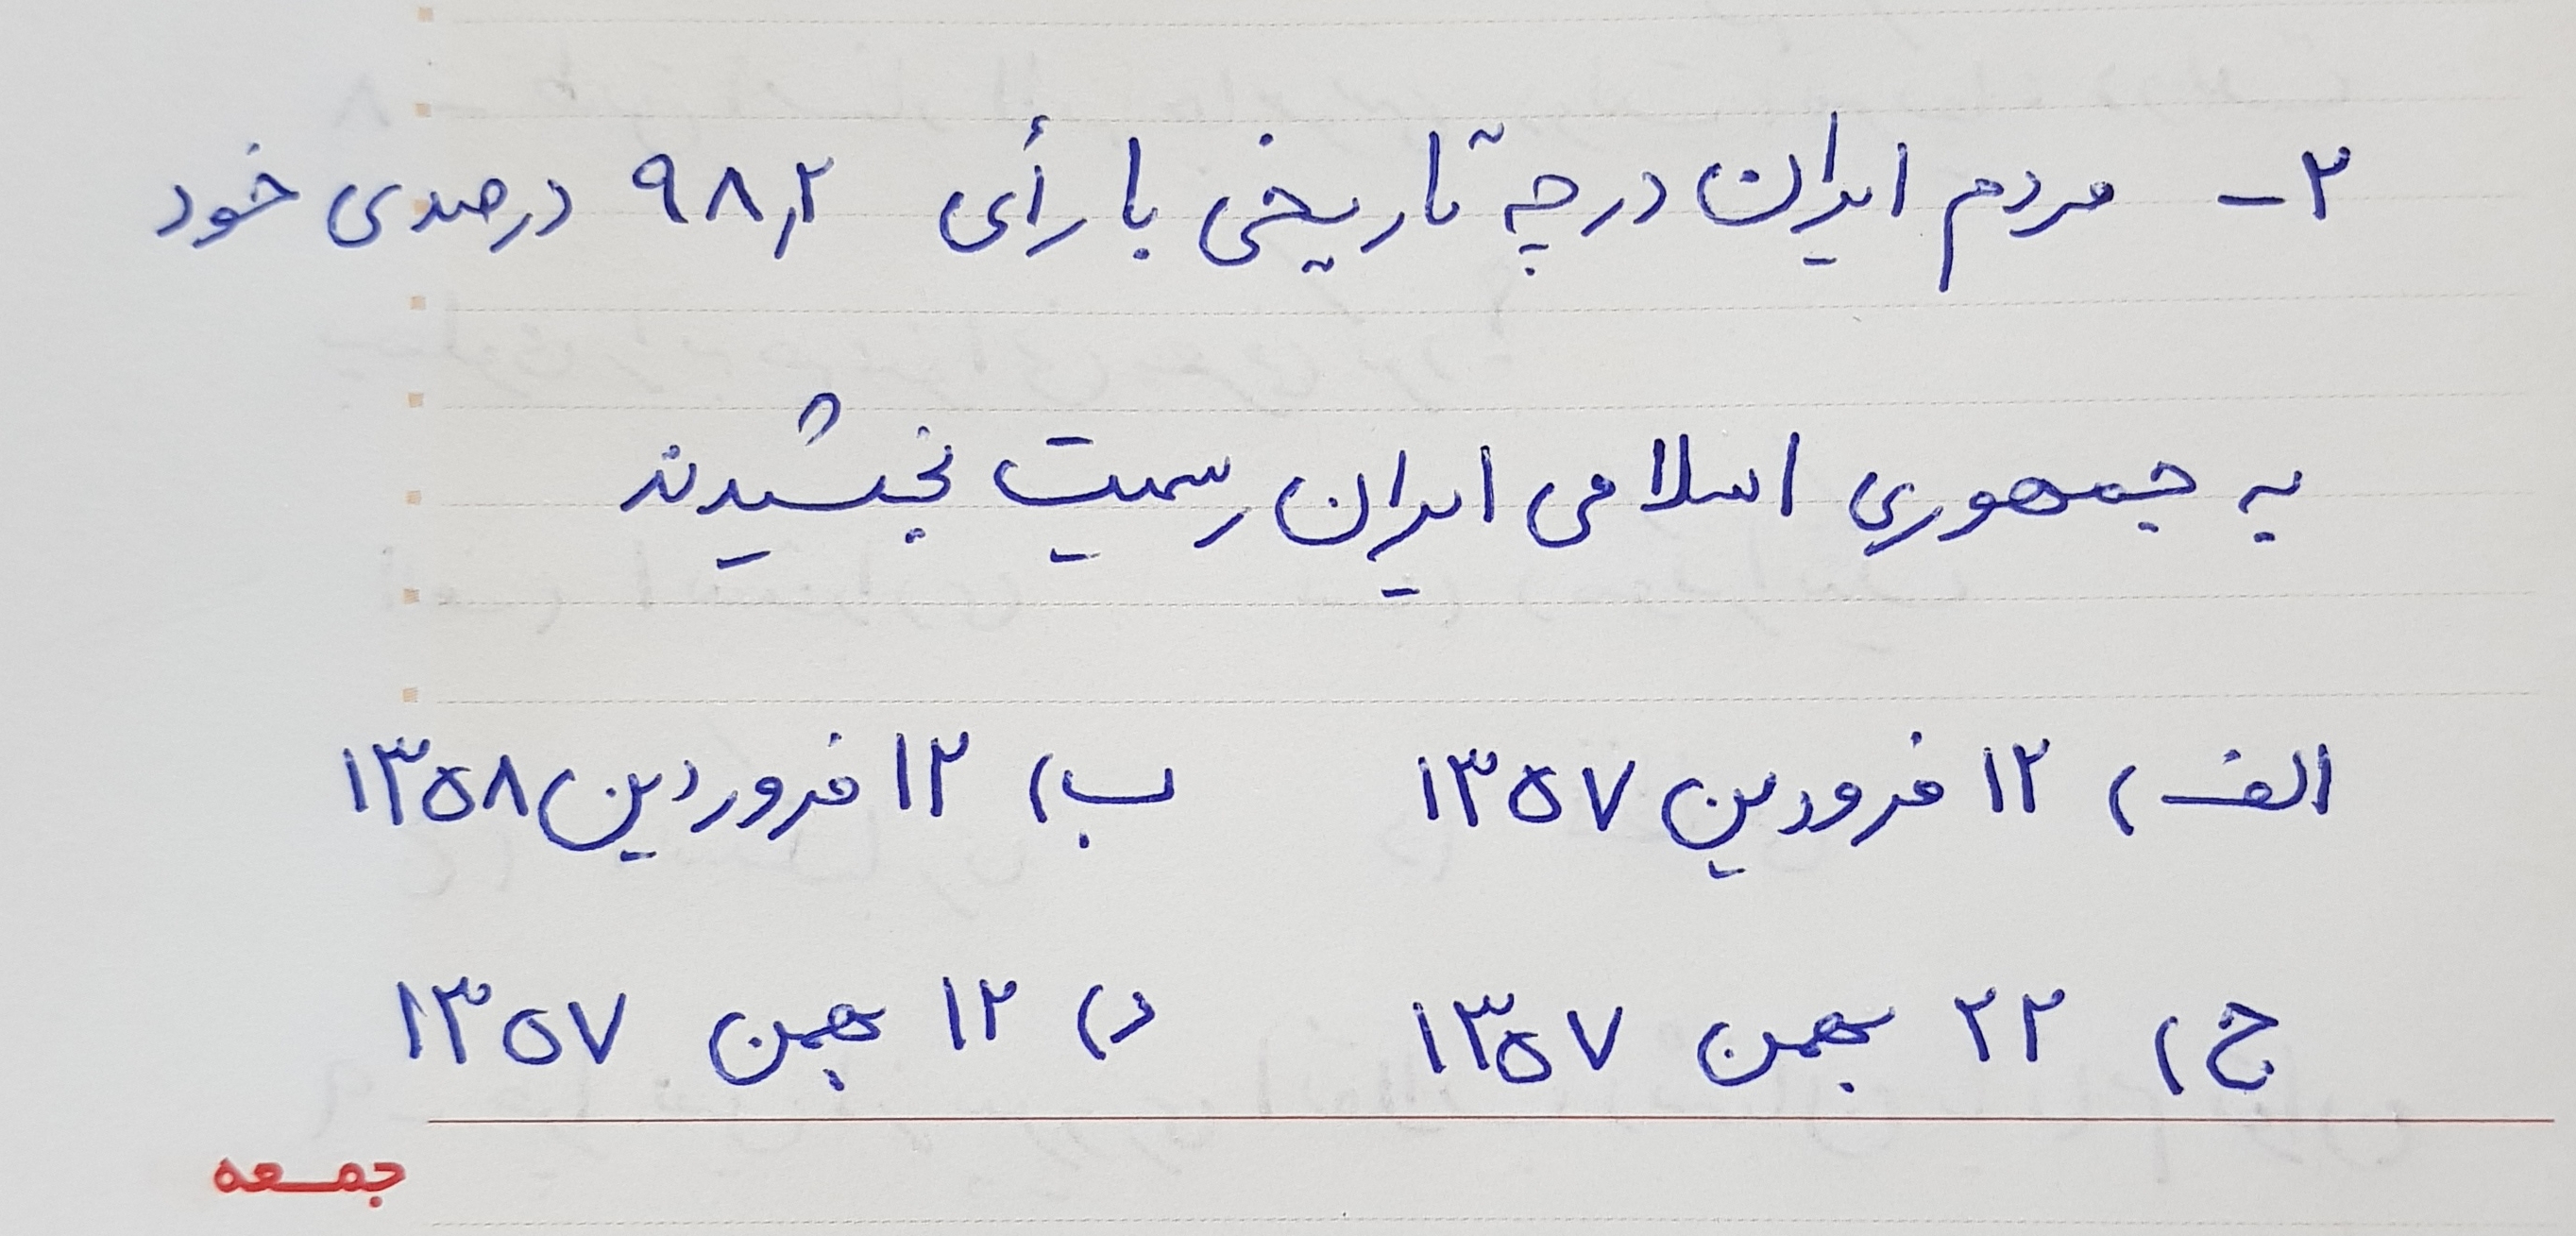 ۲- مردم ایران در چه تاریخی با رأی ۹۸٫۲ درصدی خود
به جمهوری اسلامی ایران رسمیت بخشیدند
الف) ۱۲ فروردین ۱۳۵۷ ب) ۱۲ فروردین ۱۳۵۸
ج) ۲۲ بهمن ۱۳۵۷ د) ۱۲ بهمن ۱۳۵۷
جمعه